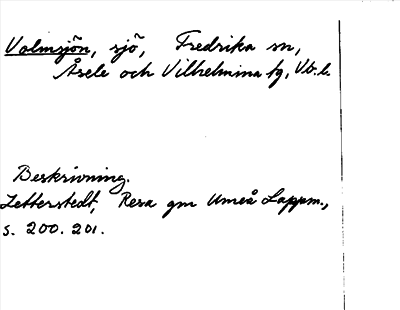 Volmsjön, sjö, Fredrika sn,
Åsele och Vilhelmina tg, Vb. l.
Beskrivning.
Zetterstedt, Resa gm Umeå Lappm.,
s. 200. 201.